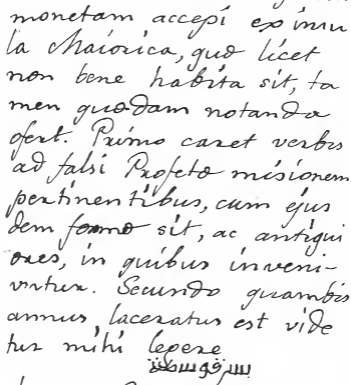 monetam accepi ex insu
la Maiorica, quæ licet
non bene habita sit, ta
men quædam notanda
ofert. Primo caret verbis
ad falsi Profetæ misionem
pertinentibus, cum ejus
dem formæ sit, ac antiqui
ores, in quibus inveni-
untur. Secundo quambis
annus laceratus est vide
tur mihi legere
بسرقوسطة